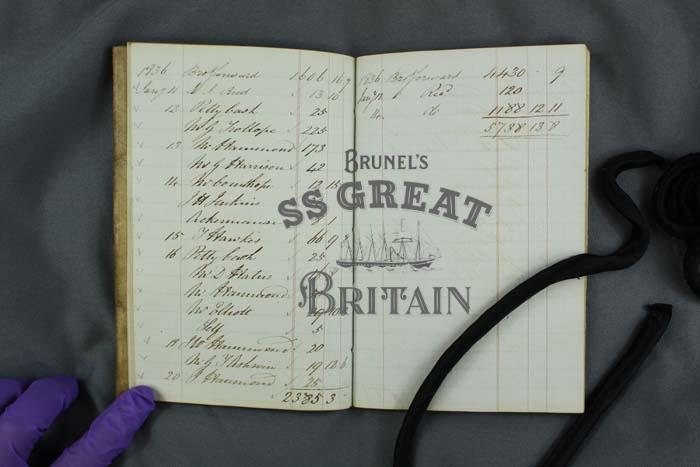 1836 Bro forward 1606 16 9
Jany 11 13 10
12 Petty cash 25
Mr G Trollope 225
13 Mr Hammond 173
Mr G Harrison 42
14 12 15
J H Jenkins
Ackermann 1
15 J Hawkes 66 9
16 Petty cash 25
Mr D
Mr Hammond
Mr Elliott 19
Self 5
18 Mr Hammond 20
Mr G 19 12 6
20 J Hammond 25
2385 3 -
1836 Bro forward 4430 - 9
Jany 12 Recd 120
14 do 1188 12 11
5738 13 8
BRUNEL'S
SS GREAT
BRITAIN